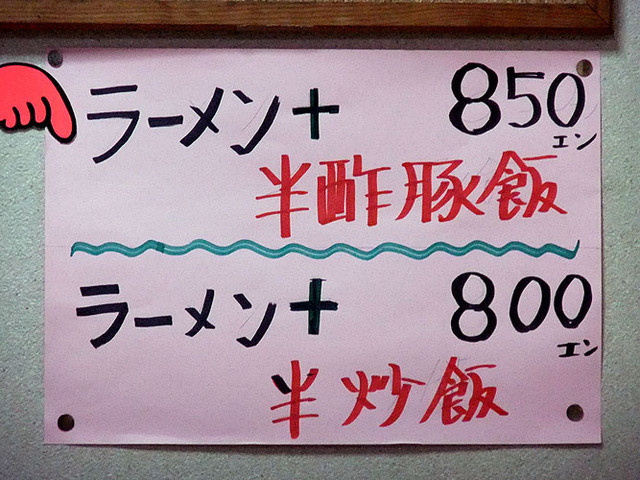 ラーメン+ 850エン
半酢豚飯
ラーメン+ 800エン
半炒飯